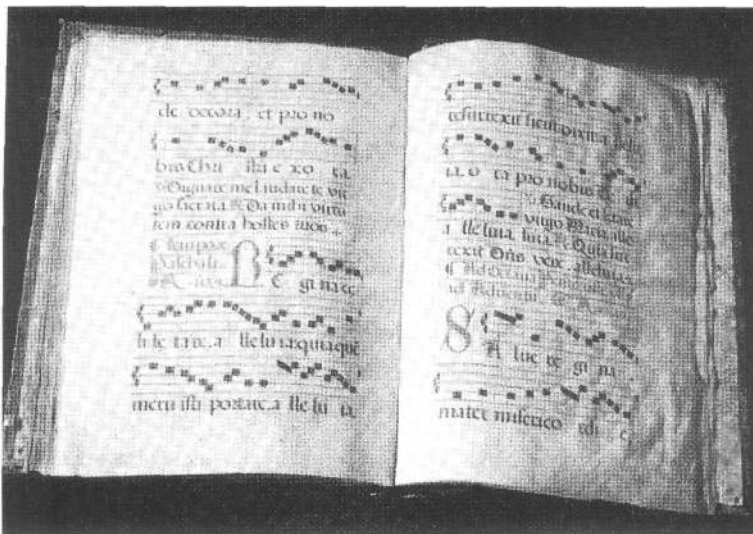 de decora, et pro no
bis Chri stū e xo ra.
℣. Dignare me laudare te vir
go sacrata. ℟. Da mihi virtu
tem contra hostes tuos.
Tempore
Paschali.
R E gi na ce
li le ta re, a lle lu ia: quia quē
meru isti portare, a lle lu ia.
resurrexit sicut dixit, a lle lu
ia. O ra pro nobis
℣. Gaude et letare
virgo Maria, alle
a lle luia, luia. ℟. Quia surre
rexit Dn̄s vere, alleluia.
S A lue re gi na
mater miserico rdi e,